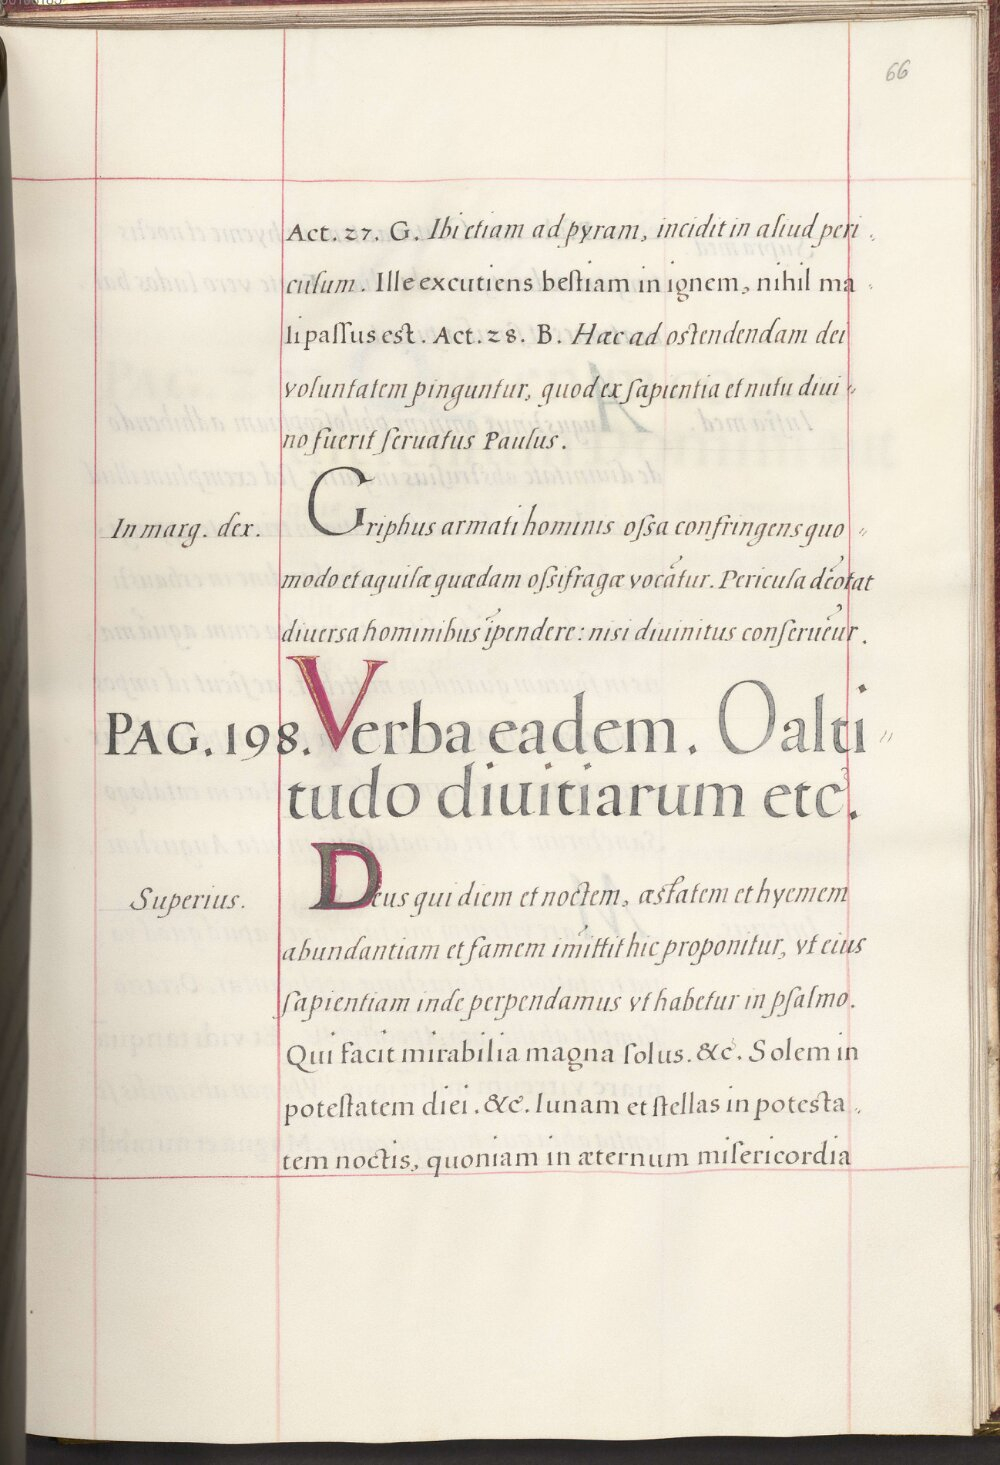 66
Act. 27. G. Ibi etiam ad pyram, incidit in aliud peri-
culum. Ille excutiens bestiam in ignem, nihil ma-
li paſſus est. Act. 28. B. Hæc ad ostendendam dei
voluntatem pinguntur, quod ex ſapientia et nutu diui-
no fuerit ſeruatus Paulus.
In marg. dex.
Griphus armati hominis oſsa confringens quo-
modo et aquilæ quædam oſsifragæ vocãtur. Pericula dẽotat
diuersa hominibus ĩpendere: nisi diuinitus conſeruẽur.
PAG. 198. Verba eadem. O alti-
tudo diuitiarum etc.
Superius.
Deus qui diem et noctem, æstatem et hyemem
abundantiam et famem imittit hic proponitur, vt eius
ſapientiam inde perpendamus vt habetur in pſalmo.
Qui facit mirabilia magna ſolus. &c. Solem in
poteſtatem diei. &c. lunam et ſtellas in potesta-
tem noctis, quoniam in æternum miſericordia